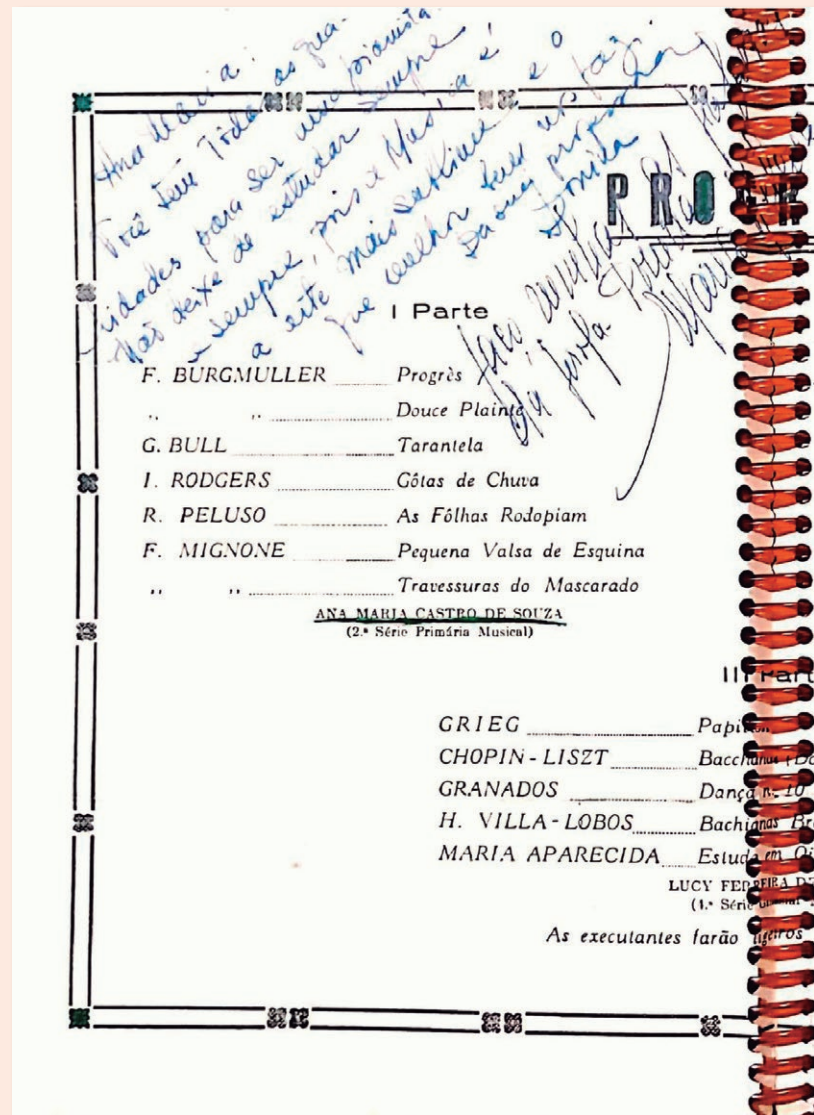 Ana Maria:
Você tem Todas as qua-
lidades para ser uma pianista
Não deixe de estudar sempre
e sempre, pois a Musica é
a arte mais sublime e o
que melhor
da sua professora
PROGR
I Parte
F. BURGMULLER Progrès
,, ,, Douce Plainte
G. BULL Tarantela
I. RODGERS Gôtas de Chuva
R. PELUSO As Fôlhas Rodopiam
F. MIGNONE Pequena Valsa de Esquina
,, ,, Travessuras do Mascarado
ANA MARIA CASTRO DE SOUZA
(2.ª Série Primária Musical)
III Part
GRIEG Papillon
CHOPIN-LISZT Bacchanal (Do
GRANADOS Dança n. 10
H. VILLA-LOBOS Bachianas Br
MARIA APARECIDA Estudo em Oi
LUCY FERREIRA DE
(4.ª Série
As executantes farão ligeiros